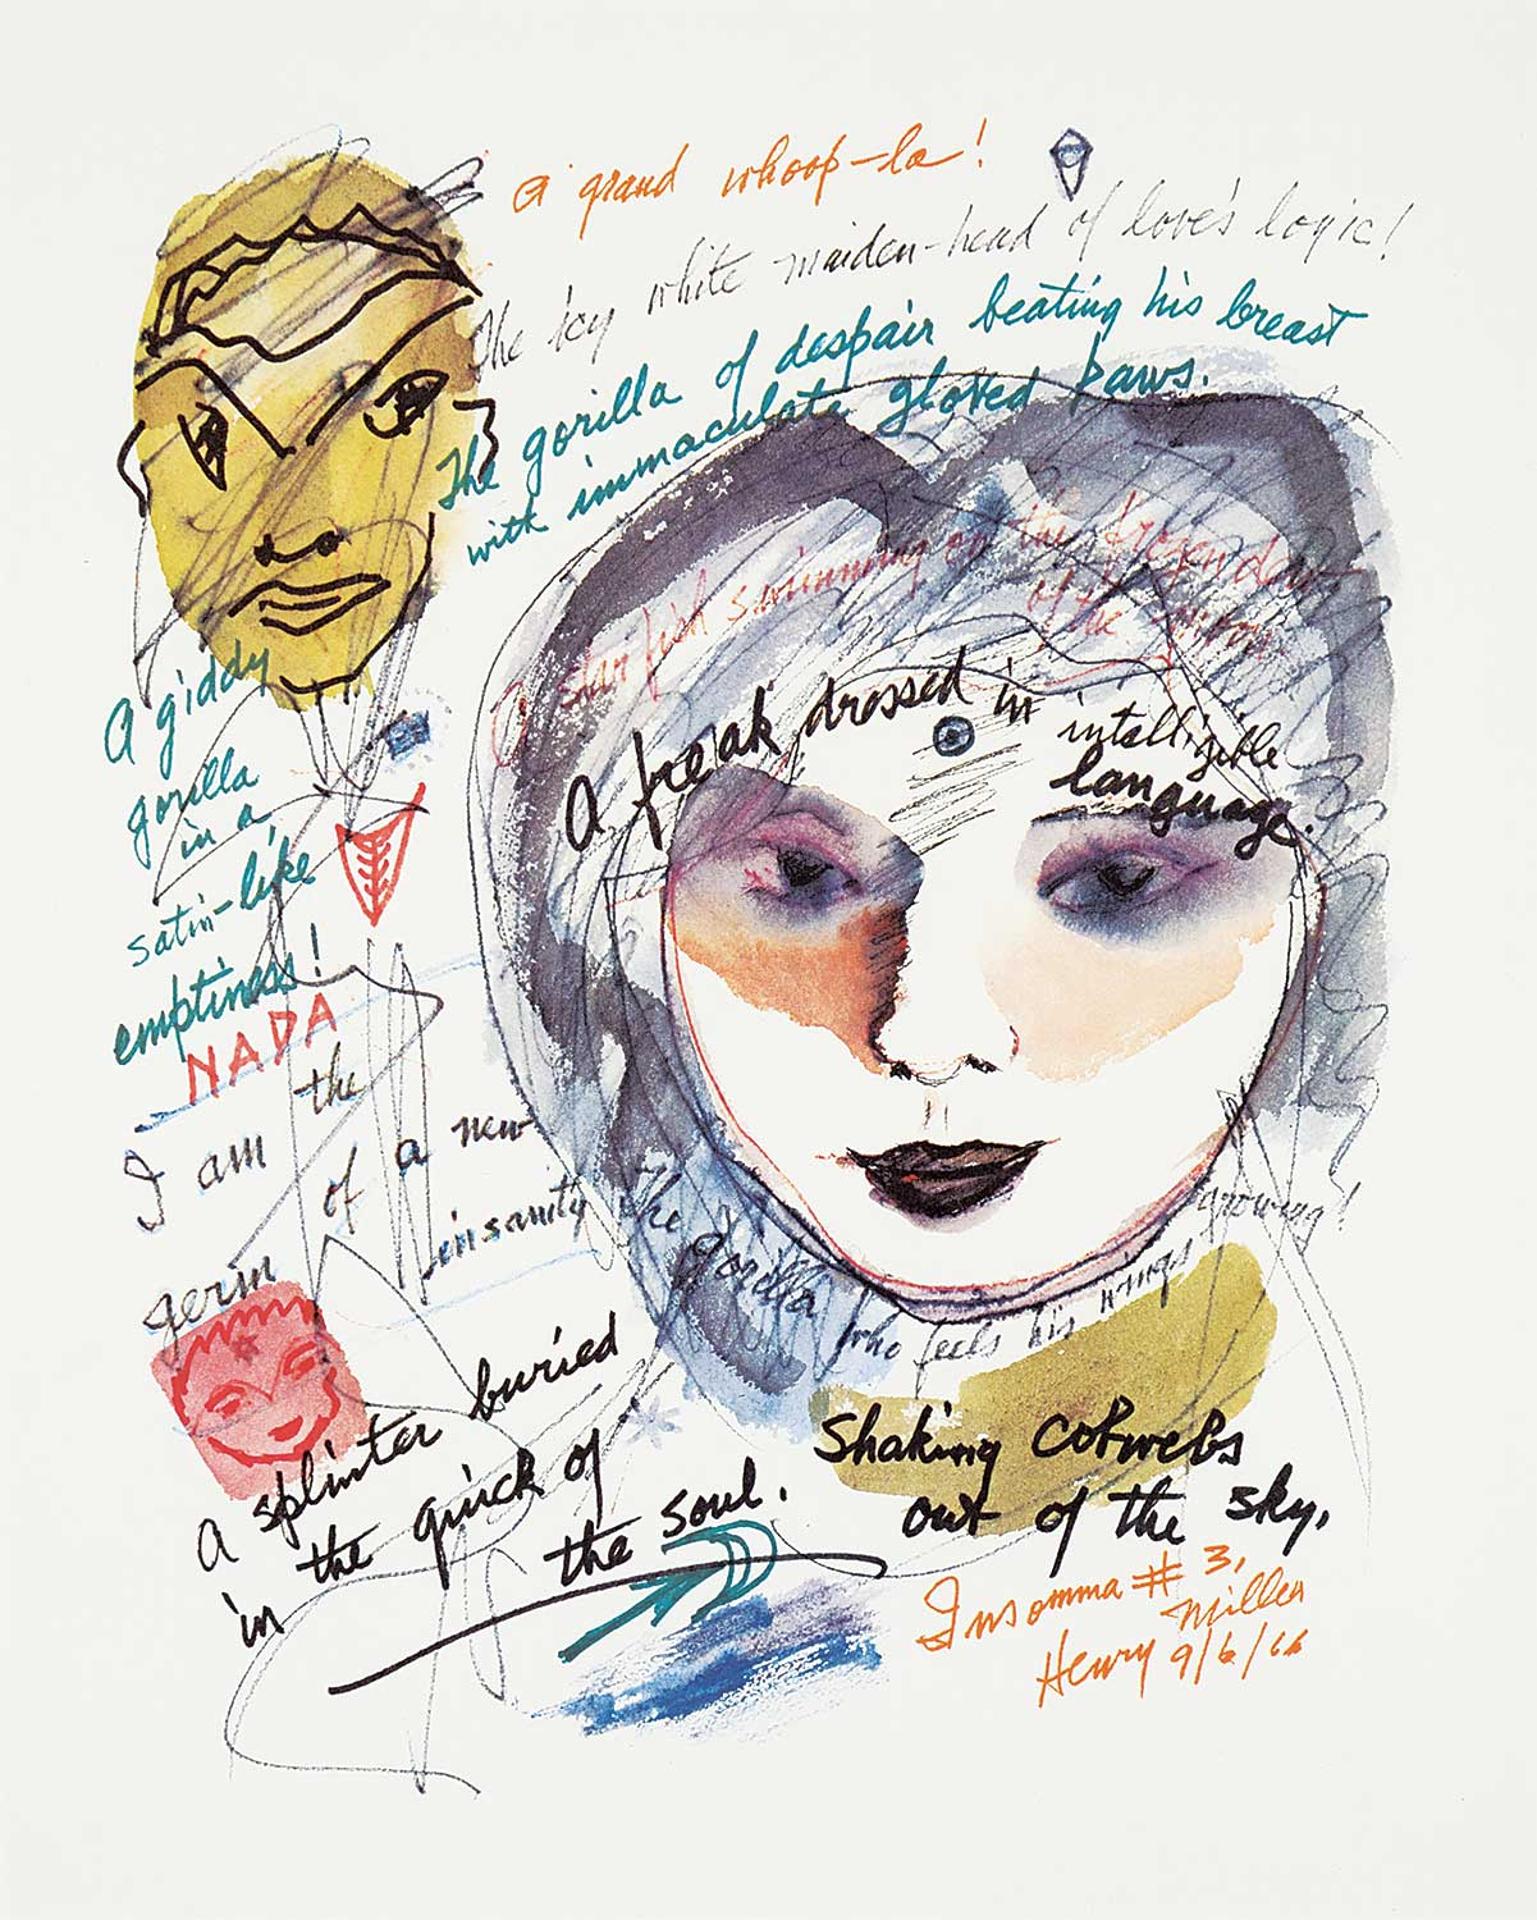 a grand whoop-la!
The icy white maiden-head of love's logic!
The gorilla of despair beating his breast
with immaculate gloved paws.
A star fish swimming on the frozen dew
of the
A freak dressed in intelligible
language.
A giddy
gorilla
in a
satin-like
emptiness!
NADA
I am the
germ of a new
insanity
The gorilla who feels his wings growing!
A splinter buried
in the quick of
the soul.
Shaking cobwebs
out of the sky.
Insomnia # 3,
Henry Miller
9/6/66